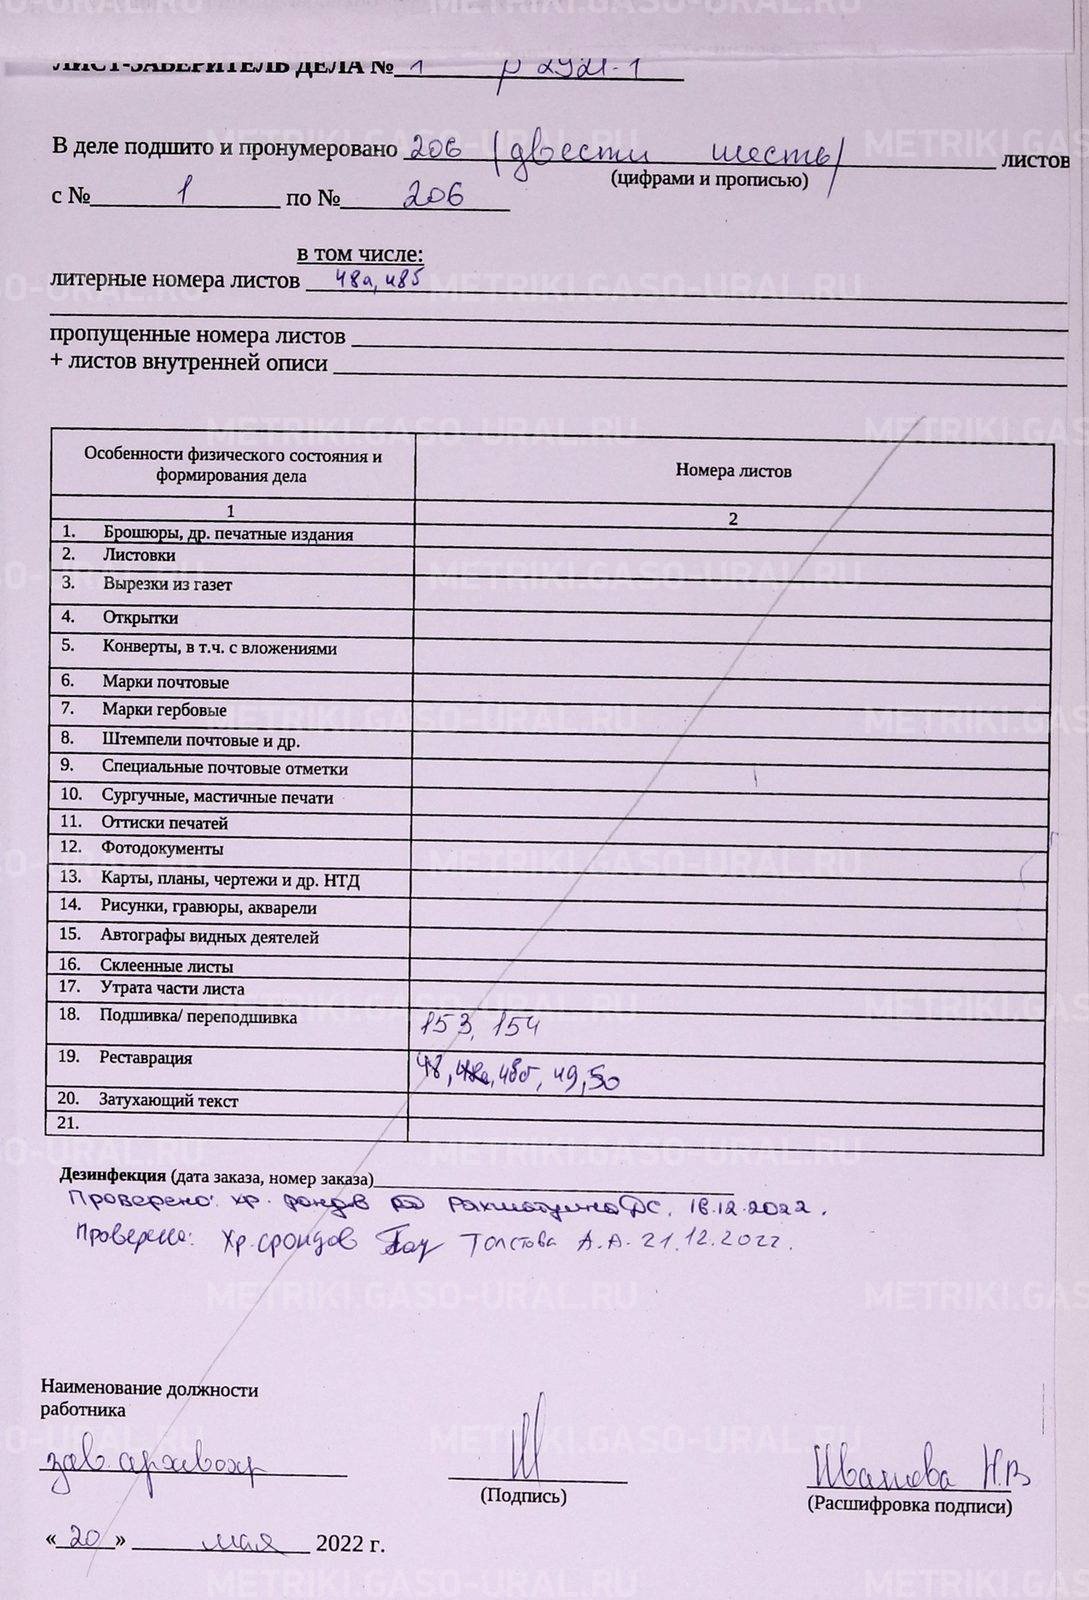 ЛИСТ-ЗАВЕРИТЕЛЬ ДЕЛА № 1 р 2921-1
В деле подшито и пронумеровано 206 (двести шесть) листов
(цифрами и прописью)
с № 1 по № 206
в том числе:
литерные номера листов 48а, 48б
пропущенные номера листов
+ листов внутренней описи
Особенности физического состояния и формирования дела
Номера листов
1 2
1. Брошюры, др. печатные издания
2. Листовки
3. Вырезки из газет
4. Открытки
5. Конверты, в т.ч. с вложениями
6. Марки почтовые
7. Марки гербовые
8. Штемпели почтовые и др.
9. Специальные почтовые отметки
10. Сургучные, мастичные печати
11. Оттиски печатей
12. Фотодокументы
13. Карты, планы, чертежи и др. НТД
14. Рисунки, гравюры, акварели
15. Автографы видных деятелей
16. Склеенные листы
17. Утрата части листа
18. Подшивка/ переподшивка 153, 154
19. Реставрация 48, 48а, 48б, 49, 50
20. Затухающий текст
21.
Дезинфекция (дата заказа, номер заказа)
Проверено: хр. фондов ДС. 16.12.2022.
Проверено: Хр. фондов Толстова А.А. 21.12.2022.
Наименование должности
работника
зав. архивохр
(Подпись)
Иванова Н.В
(Расшифровка подписи)
« 20 » мая 2022 г.
METRIKI.GASO-URAL.RU